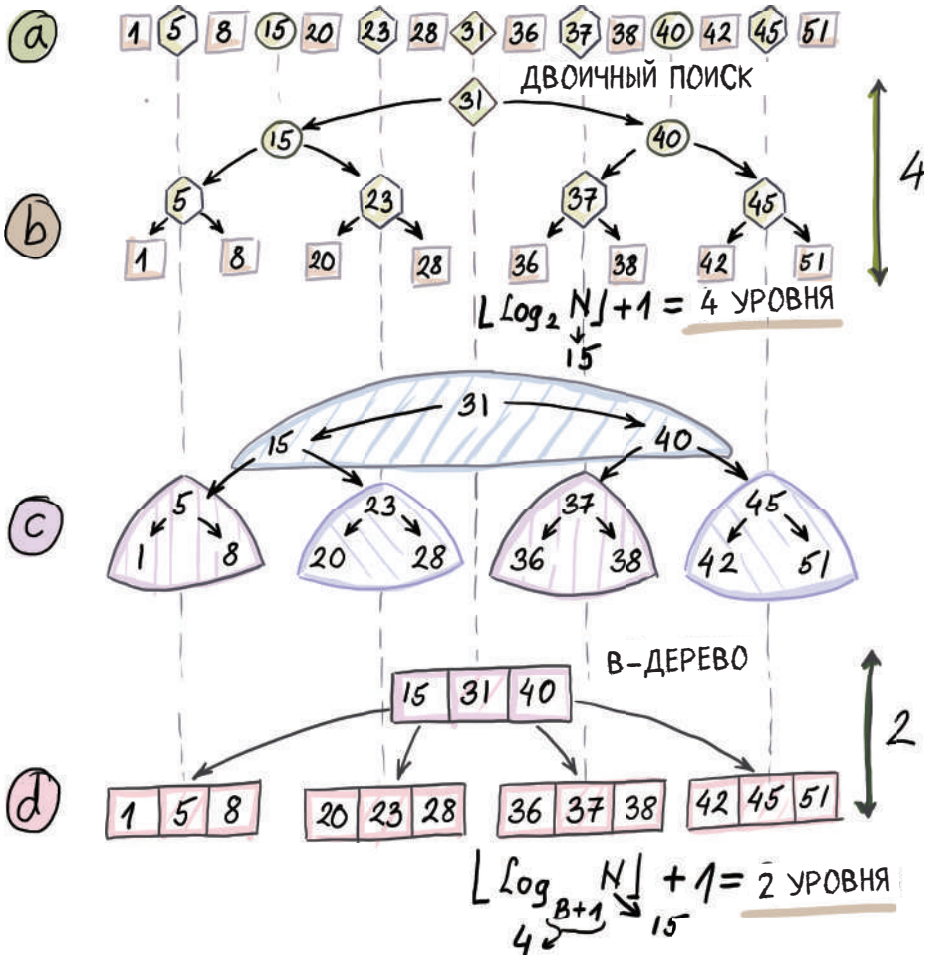 a 1 5 8 15 20 23 28 31 36 37 38 40 42 45 51
ДВОИЧНЫЙ ПОИСК
31
15 40
4
b 5 23 37 45
1 8 20 28 36 38 42 51
⌊Log₂ N⌋ + 1 = 4 УРОВНЯ
15
31
15 40
c 5 23 37 45
1 8 20 28 36 38 42 51
В-ДЕРЕВО
15 31 40
2
d 1 5 8 20 23 28 36 37 38 42 45 51
⌊Log B+1 N⌋ + 1 = 2 УРОВНЯ
4 15